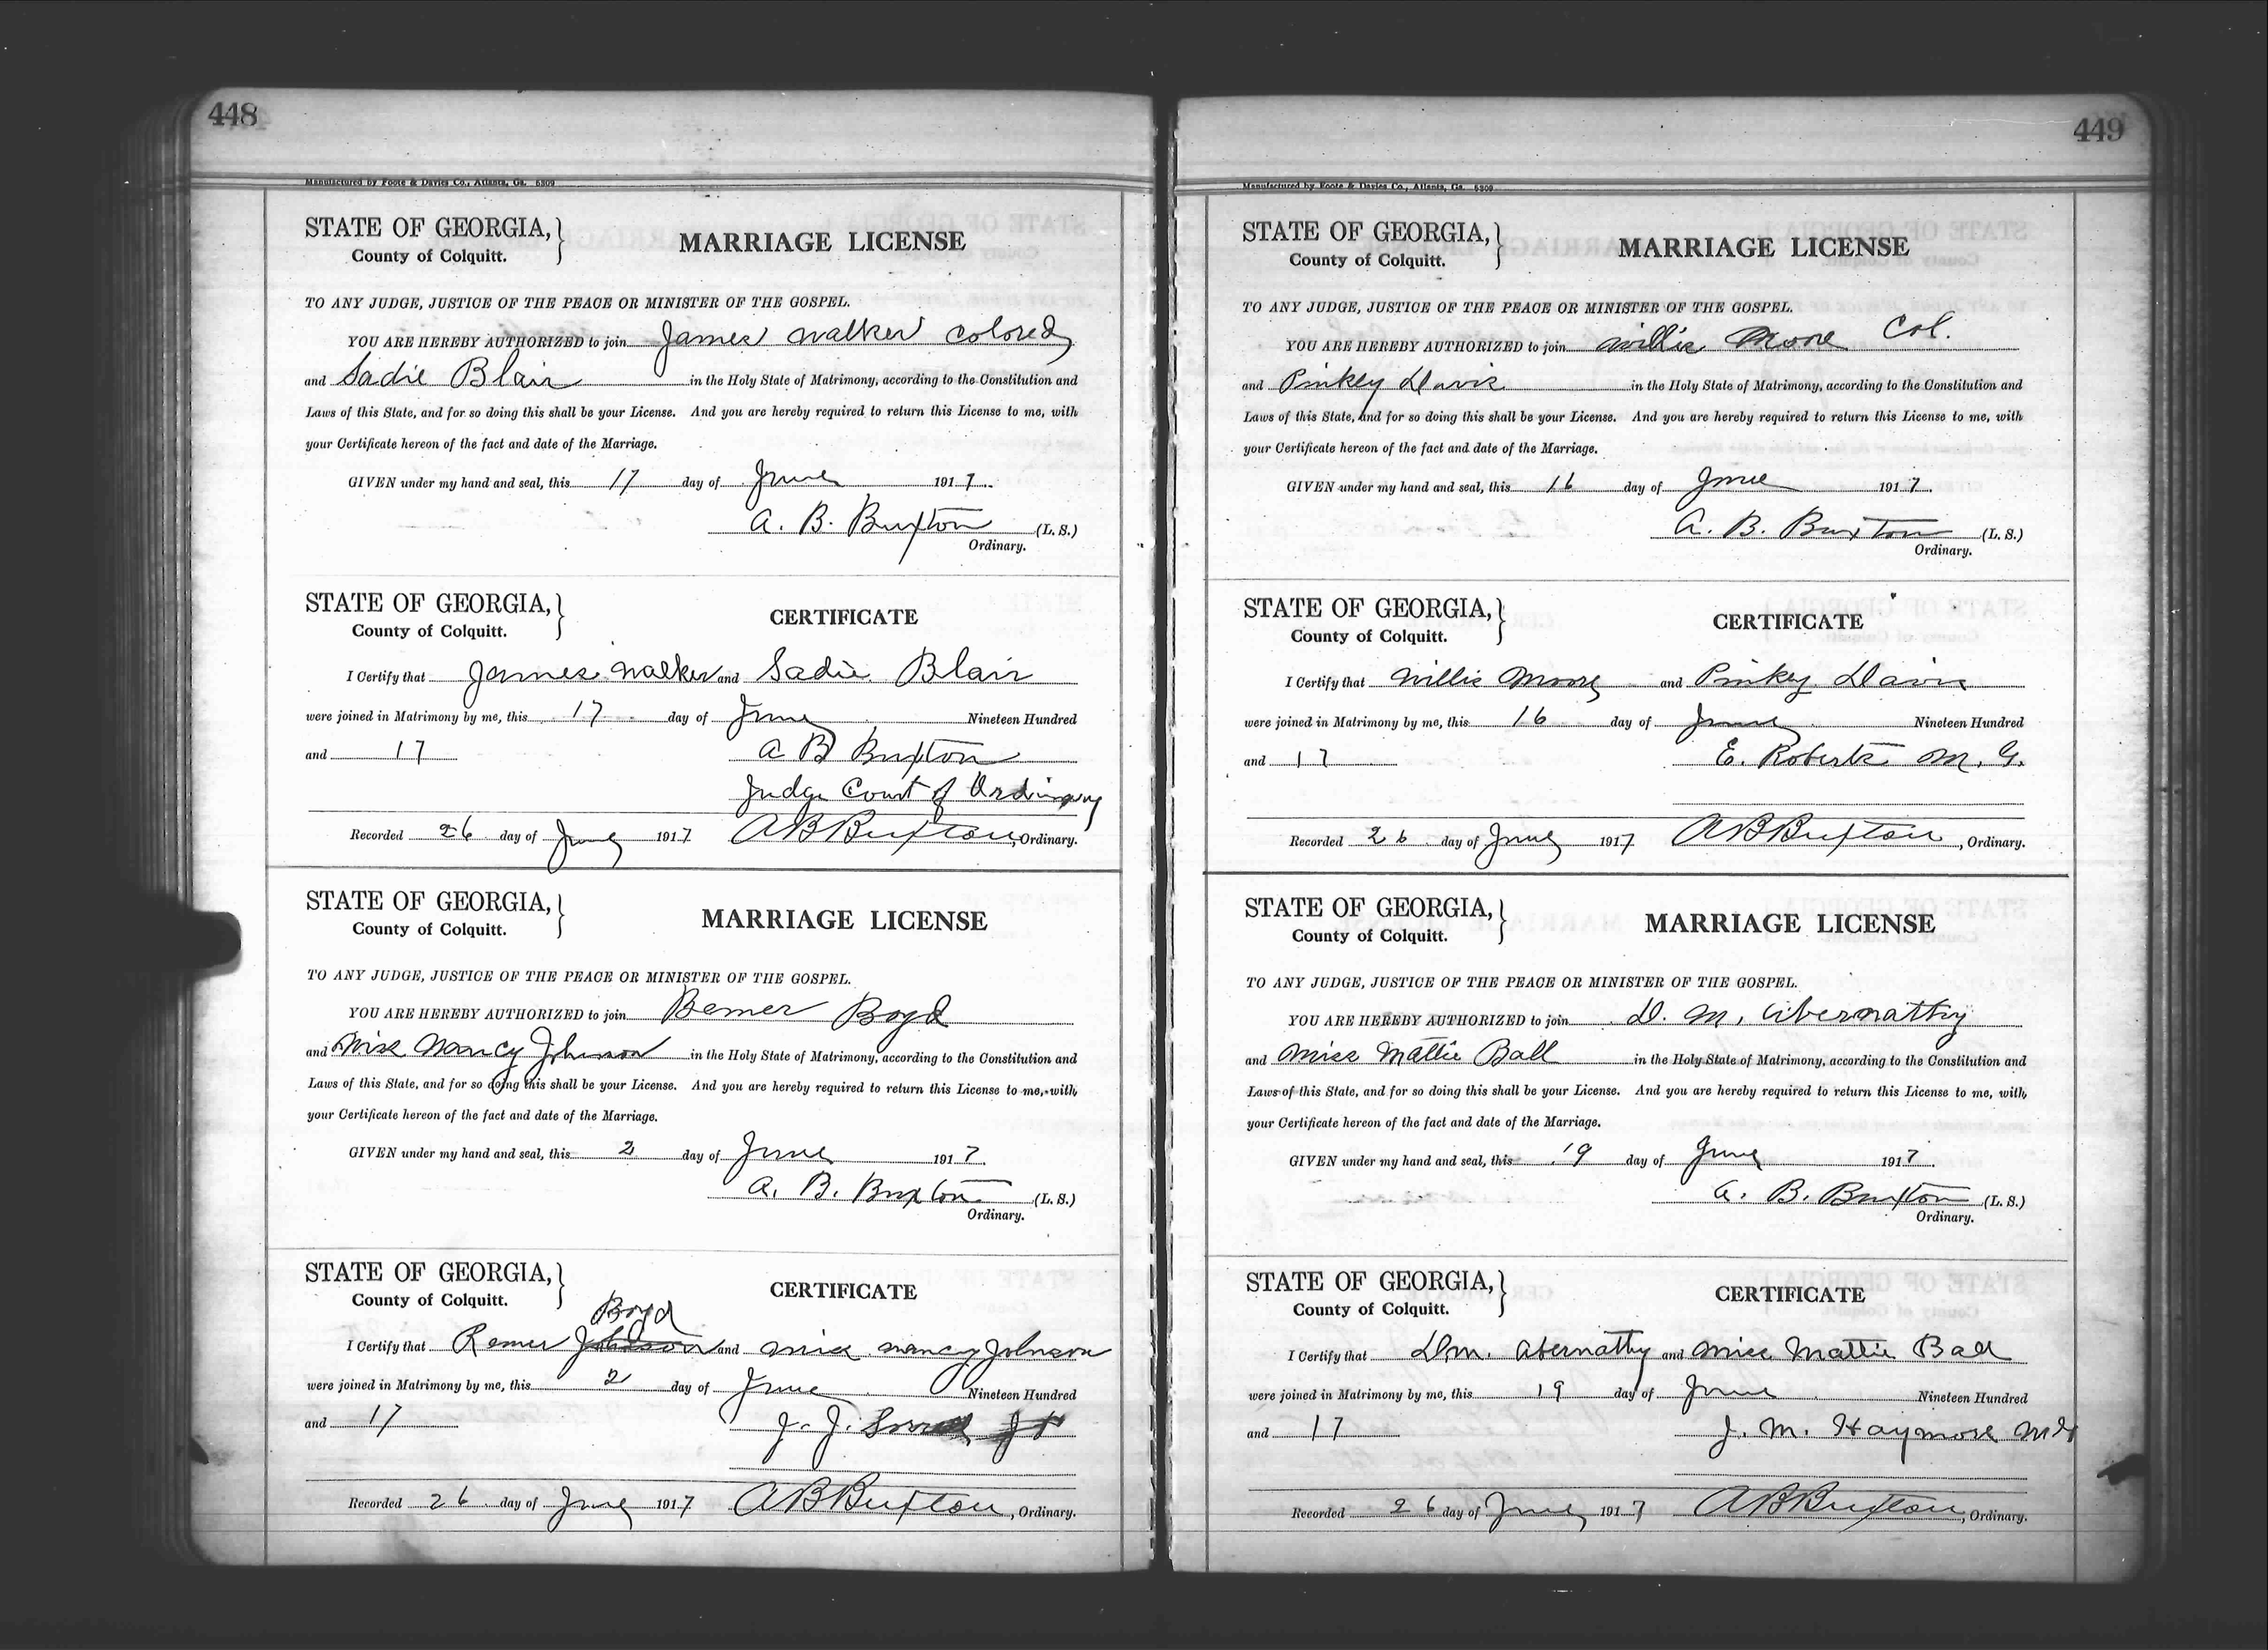 448
Manufactured by Foote & Davies Co., Atlanta, Ga. 5309
STATE OF GEORGIA,
County of Colquitt.
MARRIAGE LICENSE
TO ANY JUDGE, JUSTICE OF THE PEACE OR MINISTER OF THE GOSPEL.
YOU ARE HEREBY AUTHORIZED to join James Walker Colored
and Sadie Blair in the Holy State of Matrimony, according to the Constitution and
Laws of this State, and for so doing this shall be your License. And you are hereby required to return this License to me, with
your Certificate hereon of the fact and date of the Marriage.
GIVEN under my hand and seal, this 17 day of June 1917
A. B. Buxton (L. S.)
Ordinary.
STATE OF GEORGIA,
County of Colquitt.
CERTIFICATE
I Certify that James Walker and Sadie Blair
were joined in Matrimony by me, this 17 day of June Nineteen Hundred
and 17 A B Buxton
Judge Court of Ordinary
Recorded 26 day of June 1917 A B Buxton, Ordinary.
STATE OF GEORGIA,
County of Colquitt.
MARRIAGE LICENSE
TO ANY JUDGE, JUSTICE OF THE PEACE OR MINISTER OF THE GOSPEL.
YOU ARE HEREBY AUTHORIZED to join Remer Boyd
and Miss Nancy Johnson in the Holy State of Matrimony, according to the Constitution and
Laws of this State, and for so doing this shall be your License. And you are hereby required to return this License to me, with
your Certificate hereon of the fact and date of the Marriage.
GIVEN under my hand and seal, this 2 day of June 1917
A. B. Buxton (L. S.)
Ordinary.
STATE OF GEORGIA,
County of Colquitt.
CERTIFICATE
Boyd
I Certify that Remer Johnson and Miss Nancy Johnson
were joined in Matrimony by me, this 2 day of June Nineteen Hundred
and 17 J. J.
Recorded 26 day of June 1917 A B Buxton, Ordinary.
449
Manufactured by Foote & Davies Co., Atlanta, Ga. 5309
STATE OF GEORGIA,
County of Colquitt.
MARRIAGE LICENSE
TO ANY JUDGE, JUSTICE OF THE PEACE OR MINISTER OF THE GOSPEL.
YOU ARE HEREBY AUTHORIZED to join Willie Moore Col.
and Pinkey Davis in the Holy State of Matrimony, according to the Constitution and
Laws of this State, and for so doing this shall be your License. And you are hereby required to return this License to me, with
your Certificate hereon of the fact and date of the Marriage.
GIVEN under my hand and seal, this 16 day of June 1917.
A. B. Buxton (L. S.)
Ordinary.
STATE OF GEORGIA,
County of Colquitt.
CERTIFICATE
I Certify that Willie Moore and Pinkey Davis
were joined in Matrimony by me, this 16 day of June Nineteen Hundred
and 17 E. Roberts M. G.
Recorded 26 day of June 1917 A B Buxton, Ordinary.
STATE OF GEORGIA,
County of Colquitt.
MARRIAGE LICENSE
TO ANY JUDGE, JUSTICE OF THE PEACE OR MINISTER OF THE GOSPEL.
YOU ARE HEREBY AUTHORIZED to join D. M. Abernathy
and Miss Mattie Ball in the Holy State of Matrimony, according to the Constitution and
Laws of this State, and for so doing this shall be your License. And you are hereby required to return this License to me, with
your Certificate hereon of the fact and date of the Marriage.
GIVEN under my hand and seal, this 19 day of June 1917.
A. B. Buxton (L. S.)
Ordinary.
STATE OF GEORGIA,
County of Colquitt.
CERTIFICATE
I Certify that D. M. Abernathy and Miss Mattie Ball
were joined in Matrimony by me, this 19 day of June Nineteen Hundred
and 17 J. M. Haymore MG
Recorded 26 day of June 1917 A B Buxton, Ordinary.